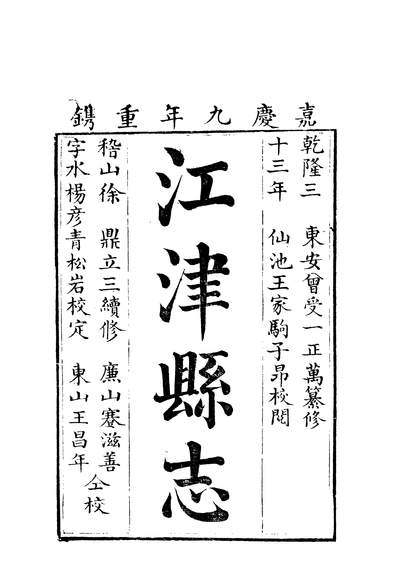 嘉慶九年重鐫
乾隆三十三年
東安曾受一正萬纂修
仙池王家駒子昂校閱
江津縣志
稽山徐鼎立三續修
廉山蹇滋善
字水楊彦青松岩校定
東山王昌年
仝校